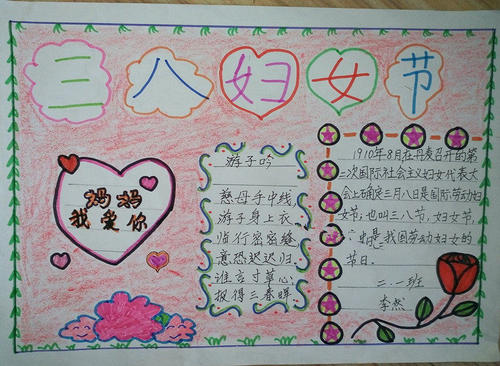 三八妇女节
妈妈
我爱你
游子吟
慈母手中线
游子身上衣
临行密密缝
意恐迟迟归.
谁言寸草心.
报得三春晖
1910年8月在丹麦召开的第
二次国际社会主义妇女代表大
会上确定三月八日是国际劳动妇
女节,也叫三八节,妇女节,
也是我国劳动妇女的
节日。
二.一班
李然